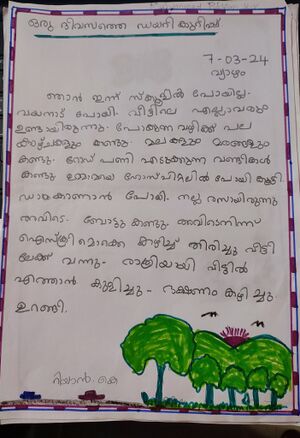 ഒരു ദിവസത്തെ ഡയറി കുറിപ്പ്
7-03-24
വ്യാഴം
ഞാൻ ഇന്ന് സ്കൂളിൽ പോയില്ല.
വയനാട് പോയി. വീട്ടിലെ എല്ലാവരും
ഉണ്ടായിരുന്നു. പോകുന്ന വഴിക്ക് പല
കാഴ്ചകളും കണ്ടു. മലകളും മരങ്ങളും
കണ്ടു. റോഡ് പണി എടുക്കുന്ന വണ്ടികൾ
കണ്ടു ഉമ്മാമയെ ഹോസ്പിറ്റലിൽ പോയി
ഡാമുകാണാൻ പോയി. നല്ല രസായിരുന്നു
അവിടെ. ബോട്ടു കണ്ടു. അവിടെനിന്ന്
ഐസ്ക്രീമൊക്കെ കഴിച്ച് തിരിച്ചു വീട്ടി
ലേക്ക് വന്നു- രാത്രിയായി വീട്ടിൽ
എത്താൻ കുളിച്ചു- ഭക്ഷണം കഴിച്ചു.
ഉറങ്ങി.
റിയാൻ. കെ